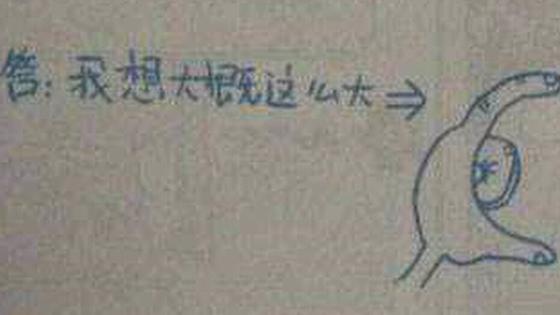 答：我想大概这么大⇒